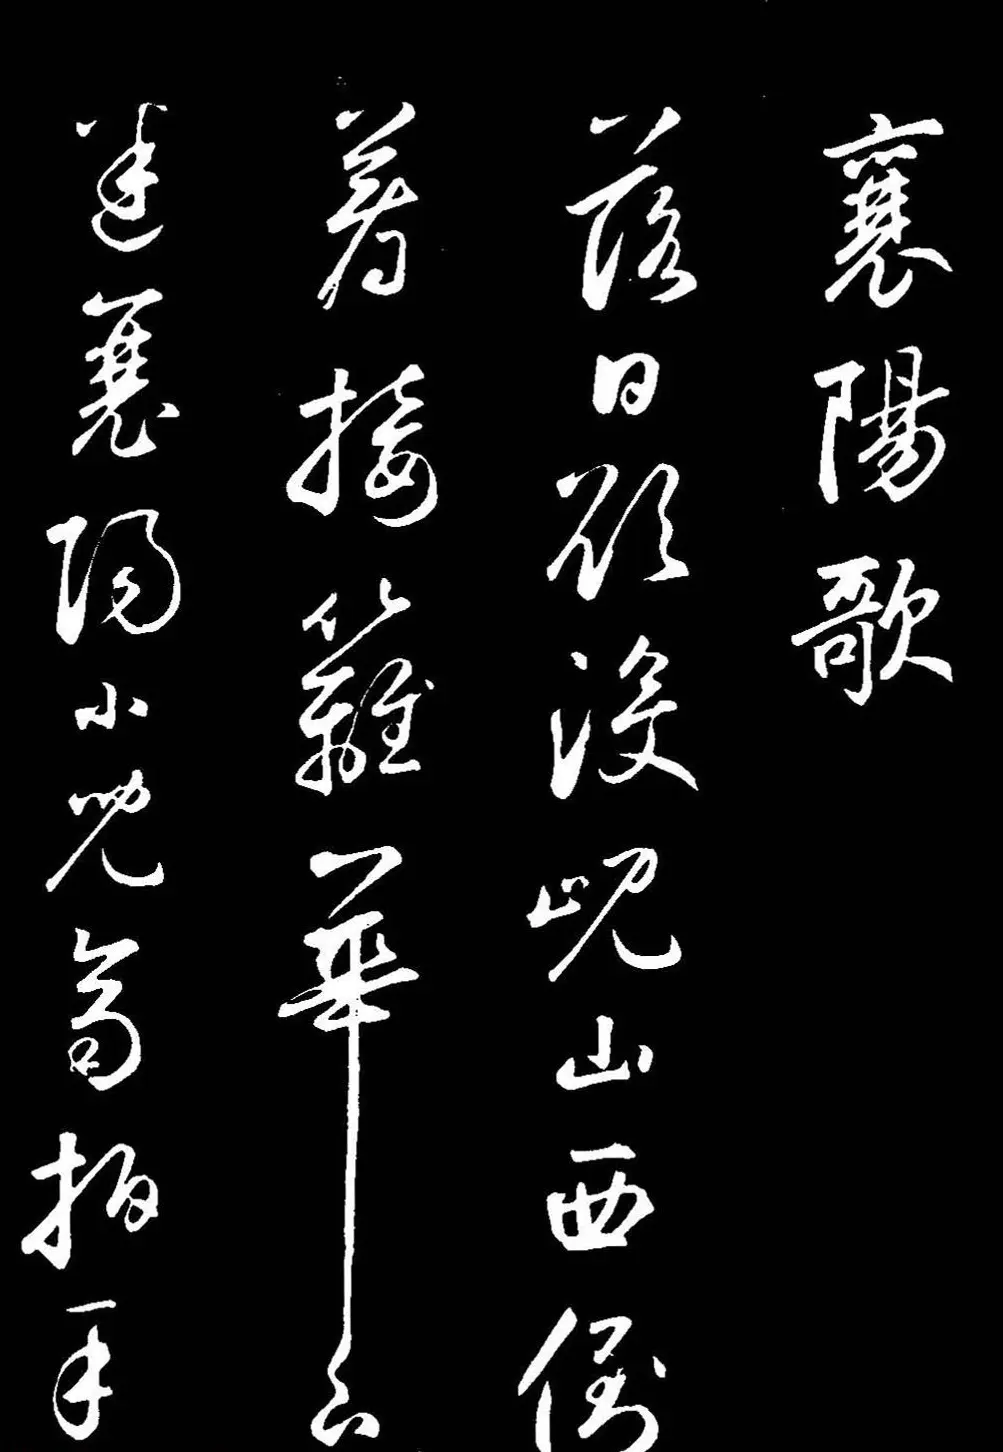 襄陽歌
落日欲沒峴山西倒
著接籬華下
迷襄陽小兒齊拍手